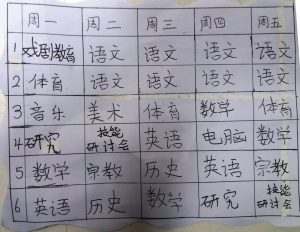 周一 周二 周三 周四 周五
1 戏剧教育 语文 语文 语文 语文
2 体育 语文 语文 语文 语文
3 音乐 美术 体育 数学 体育
4 研究 技能研讨会 英语 电脑 数学
5 数学 宗教 历史 英语 宗教
6 英语 历史 数学 研究 技能研讨会